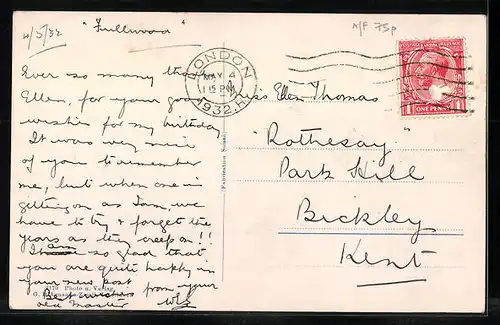 4/5/32 "Fullwood"
N/F 75p
LONDON
MAY 4
1 15 PM
1932. H
POSTAGE REVENUE
ONE PENNY
Ever so many thanks
Ellen, for your good
wishes for my birthday.
It was very nice
of you to remember
me, but when one is
getting on as I am, we
have to try & forget the
years as they creep on!!
I am so glad that
you are quite happy in
your new post
from your
Best wishes
old master
Miss Ellen Thomas
"Rothesay"
Park Hill
Bickley
Kent
Photo u. Verlag